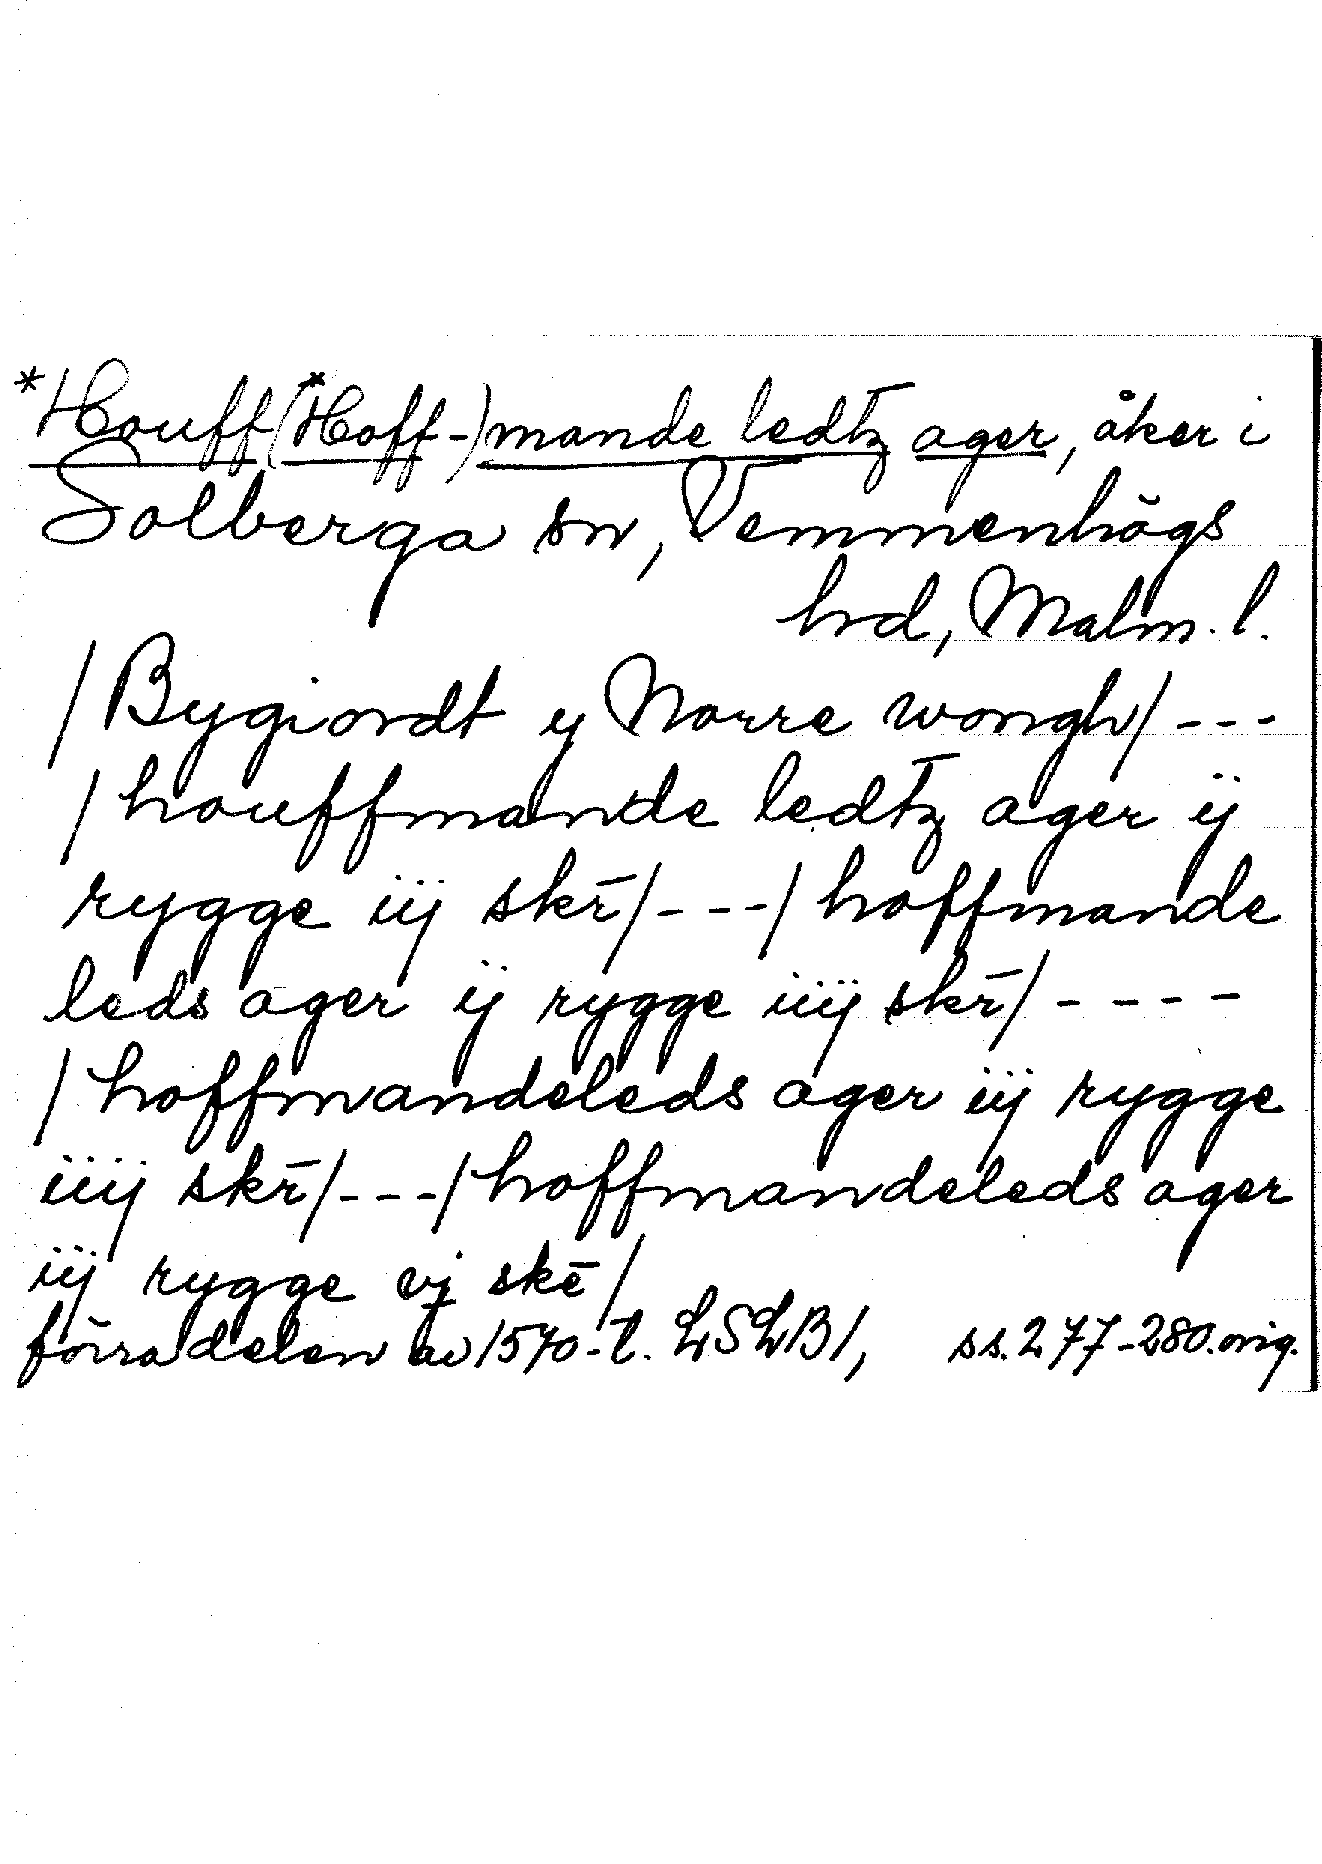 *Houff(*Hoff-)mande ledtz ager, åker i
Solberga sn, Vemmenhögs
hd, Malm. l.
/Bygiordt y Norre wongh/ ---
/houffmande ledtz ager ij
rygge iij skr̄/---/hoffmande
leds ager ij rygge iiij skr̄/ ----
/hoffmandeleds ager iij rygge
iiij skr̄/---/hoffmandeleds ager
iij rygge vj skr̄/
förra delen av 1570-t. LSLB1, ss. 277-280. orig.